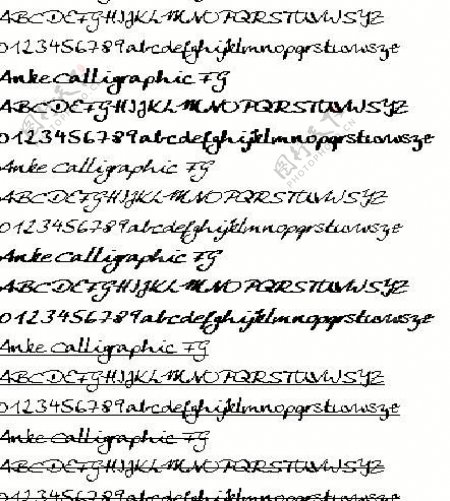 ABCDEFGHIJKLMNOPQRSTUVWXYZ
0123456789abcdefghijklmnopqrstuvwxyz
Anke Calligraphic FG
ABCDEFGHIJKLMNOPQRSTUVWXYZ
0123456789abcdefghijklmnopqrstuvwxyz
Anke Calligraphic FG
ABCDEFGHIJKLMNOPQRSTUVWXYZ
0123456789abcdefghijklmnopqrstuvwxyz
Anke Calligraphic FG
ABCDEFGHIJKLMNOPQRSTUVWXYZ
0123456789abcdefghijklmnopqrstuvwxyz
Anke Calligraphic FG
ABCDEFGHIJKLMNOPQRSTUVWXYZ
0123456789abcdefghijklmnopqrstuvwxyz
Anke Calligraphic FG
ABCDEFGHIJKLMNOPQRSTUVWXYZ
0123456789abcdefghijklmnopqrstuvwxyz